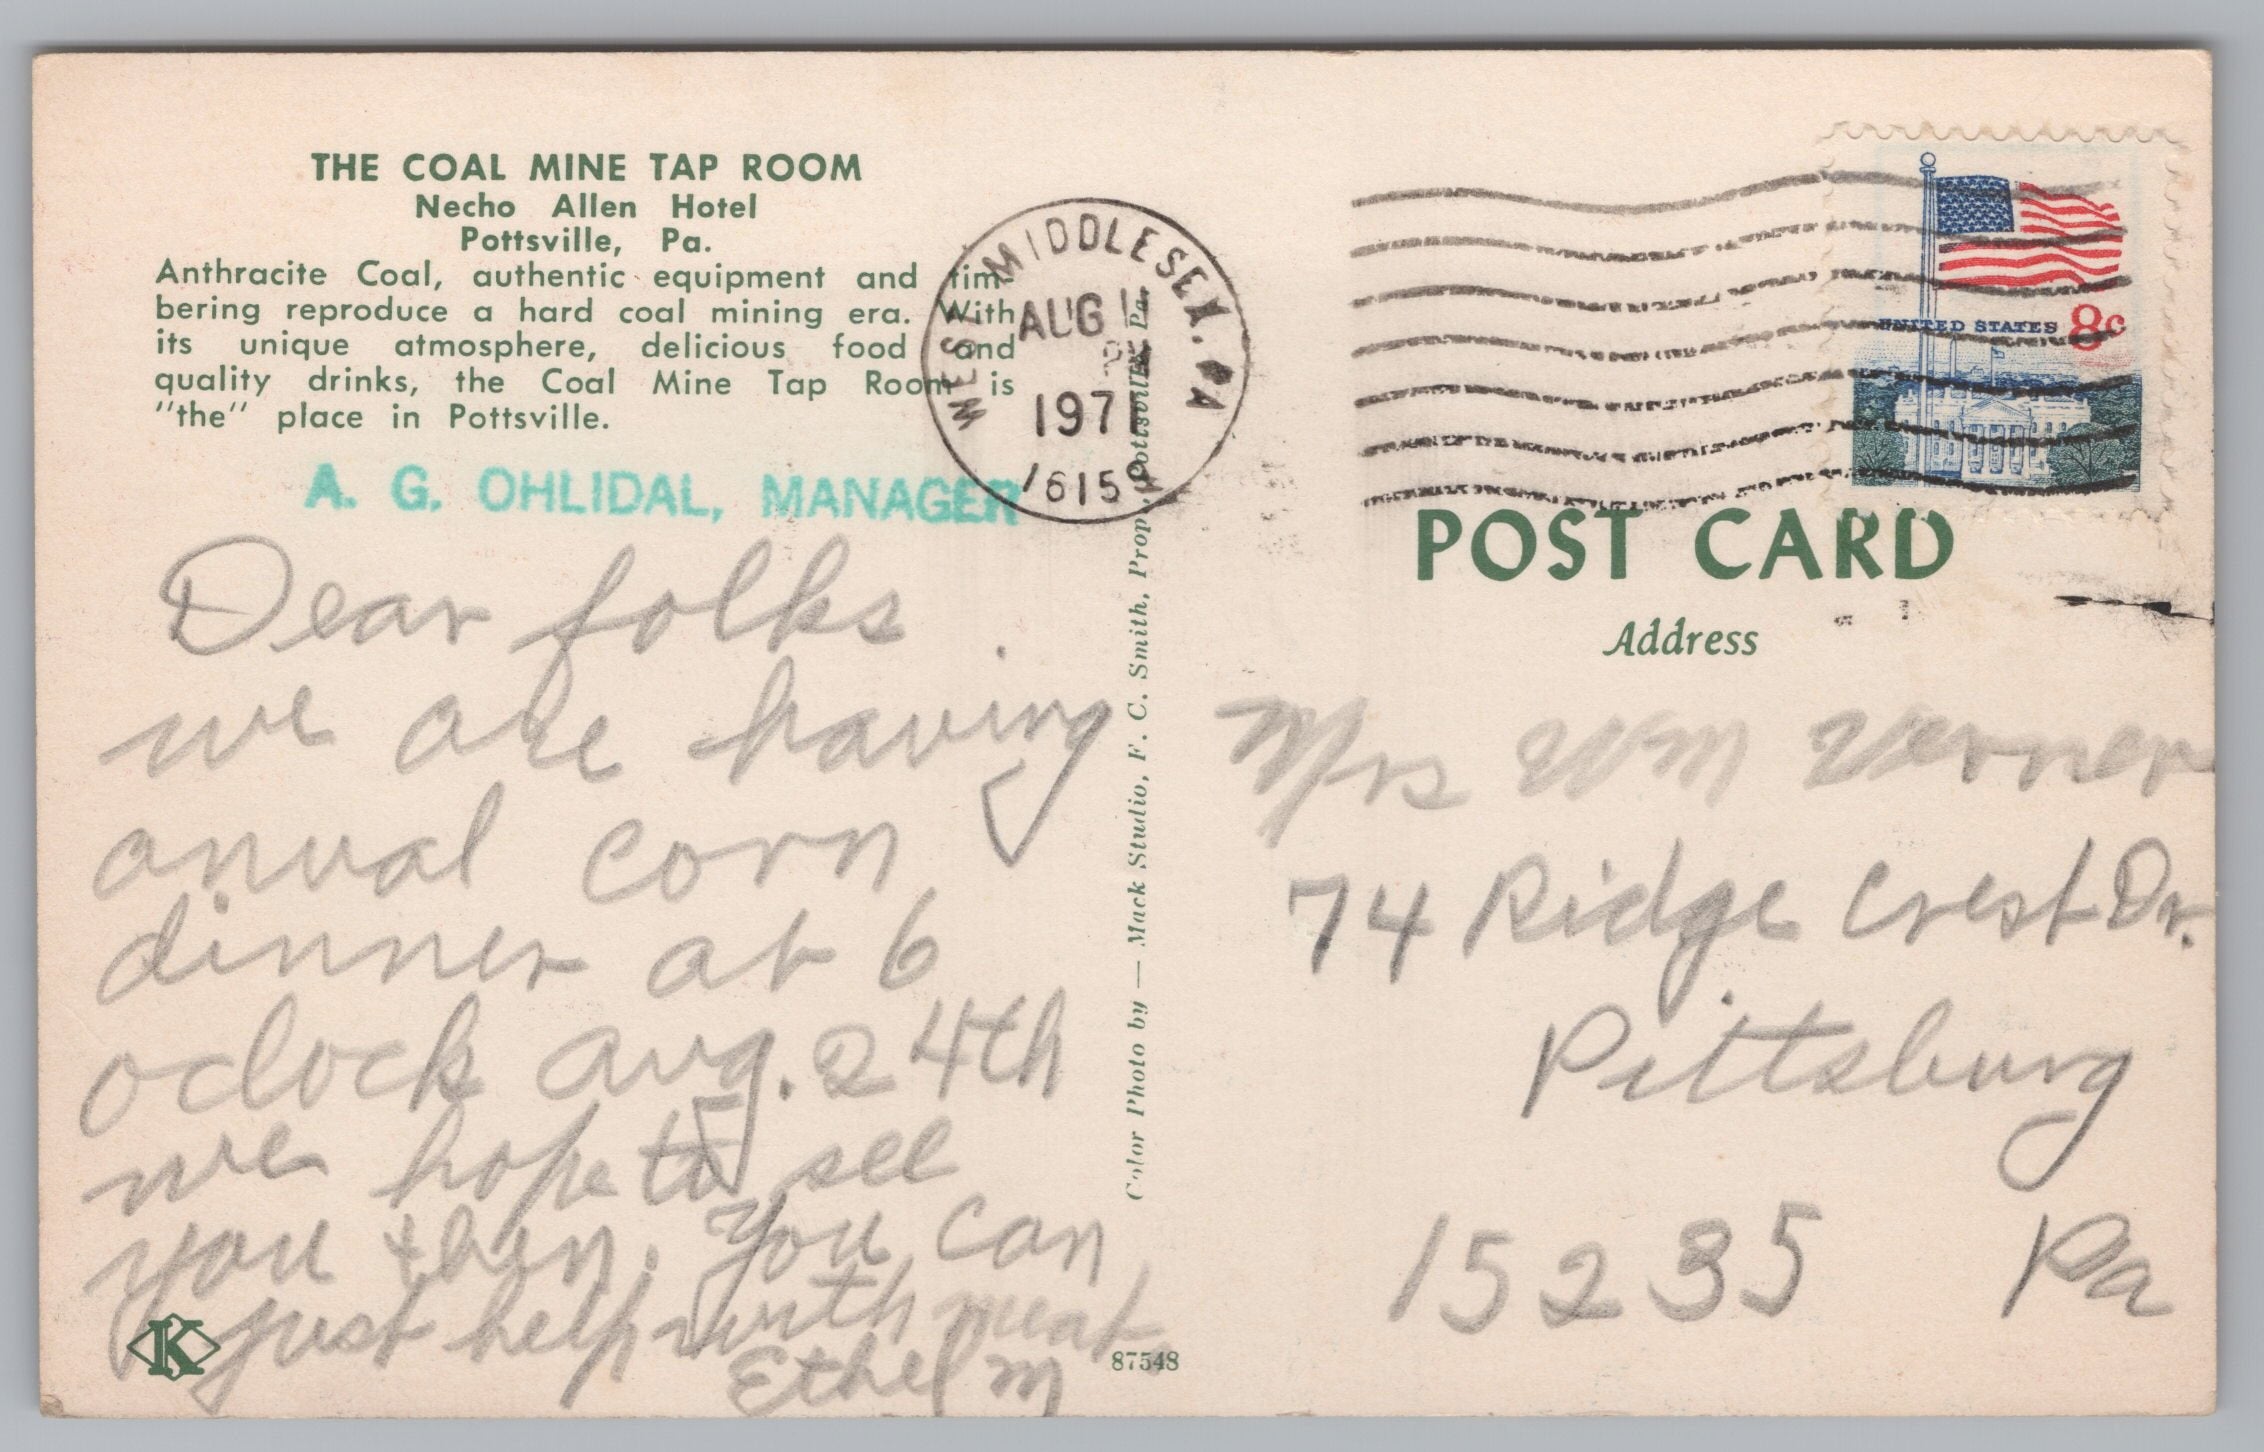 THE COAL MINE TAP ROOM
Necho Allen Hotel
Pottsville, Pa.
Anthracite Coal, authentic equipment and tim-
bering reproduce a hard coal mining era. With
its unique atmosphere, delicious food and
quality drinks, the Coal Mine Tap Room is
"the" place in Pottsville.
A. G. OHLIDAL, MANAGER
Dear folks
we are having
anual corn
dinner at 6
oclock aug. 24th
we hope to see
you then. You can
just help with meat
Ethel M
K
87548
Color Photo by — Mack Studio, F. C. Smith, Prop., Pottsville, Pa.
WEST MIDDLESEX, PA
AUG
197
16159
UNITED STATES 8c
POST CARD
Address
Mrs Wm Verner
74 Ridge Crest Dr.
Pittsburg
15235 Pa